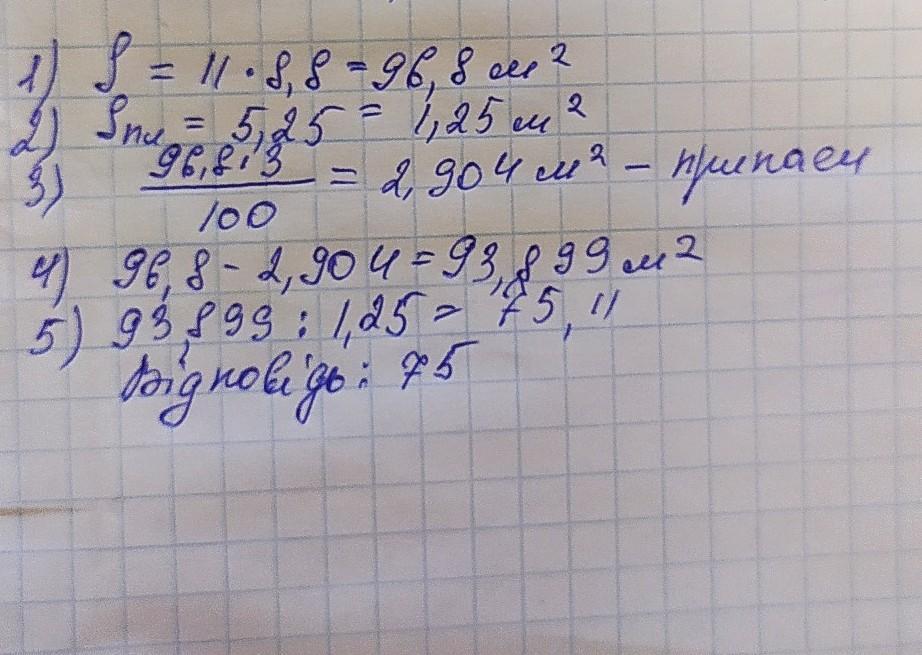 1) S = 11 · 8,8 = 96,8 м²
2) Sпл = 5,25 = 1,25 м²
3) 96,8·3/100 = 2,904 м² – припаси
4) 96,8 - 2,904 = 93,899 м²
5) 93,899 : 1,25 = 75,11
Відповідь: 75